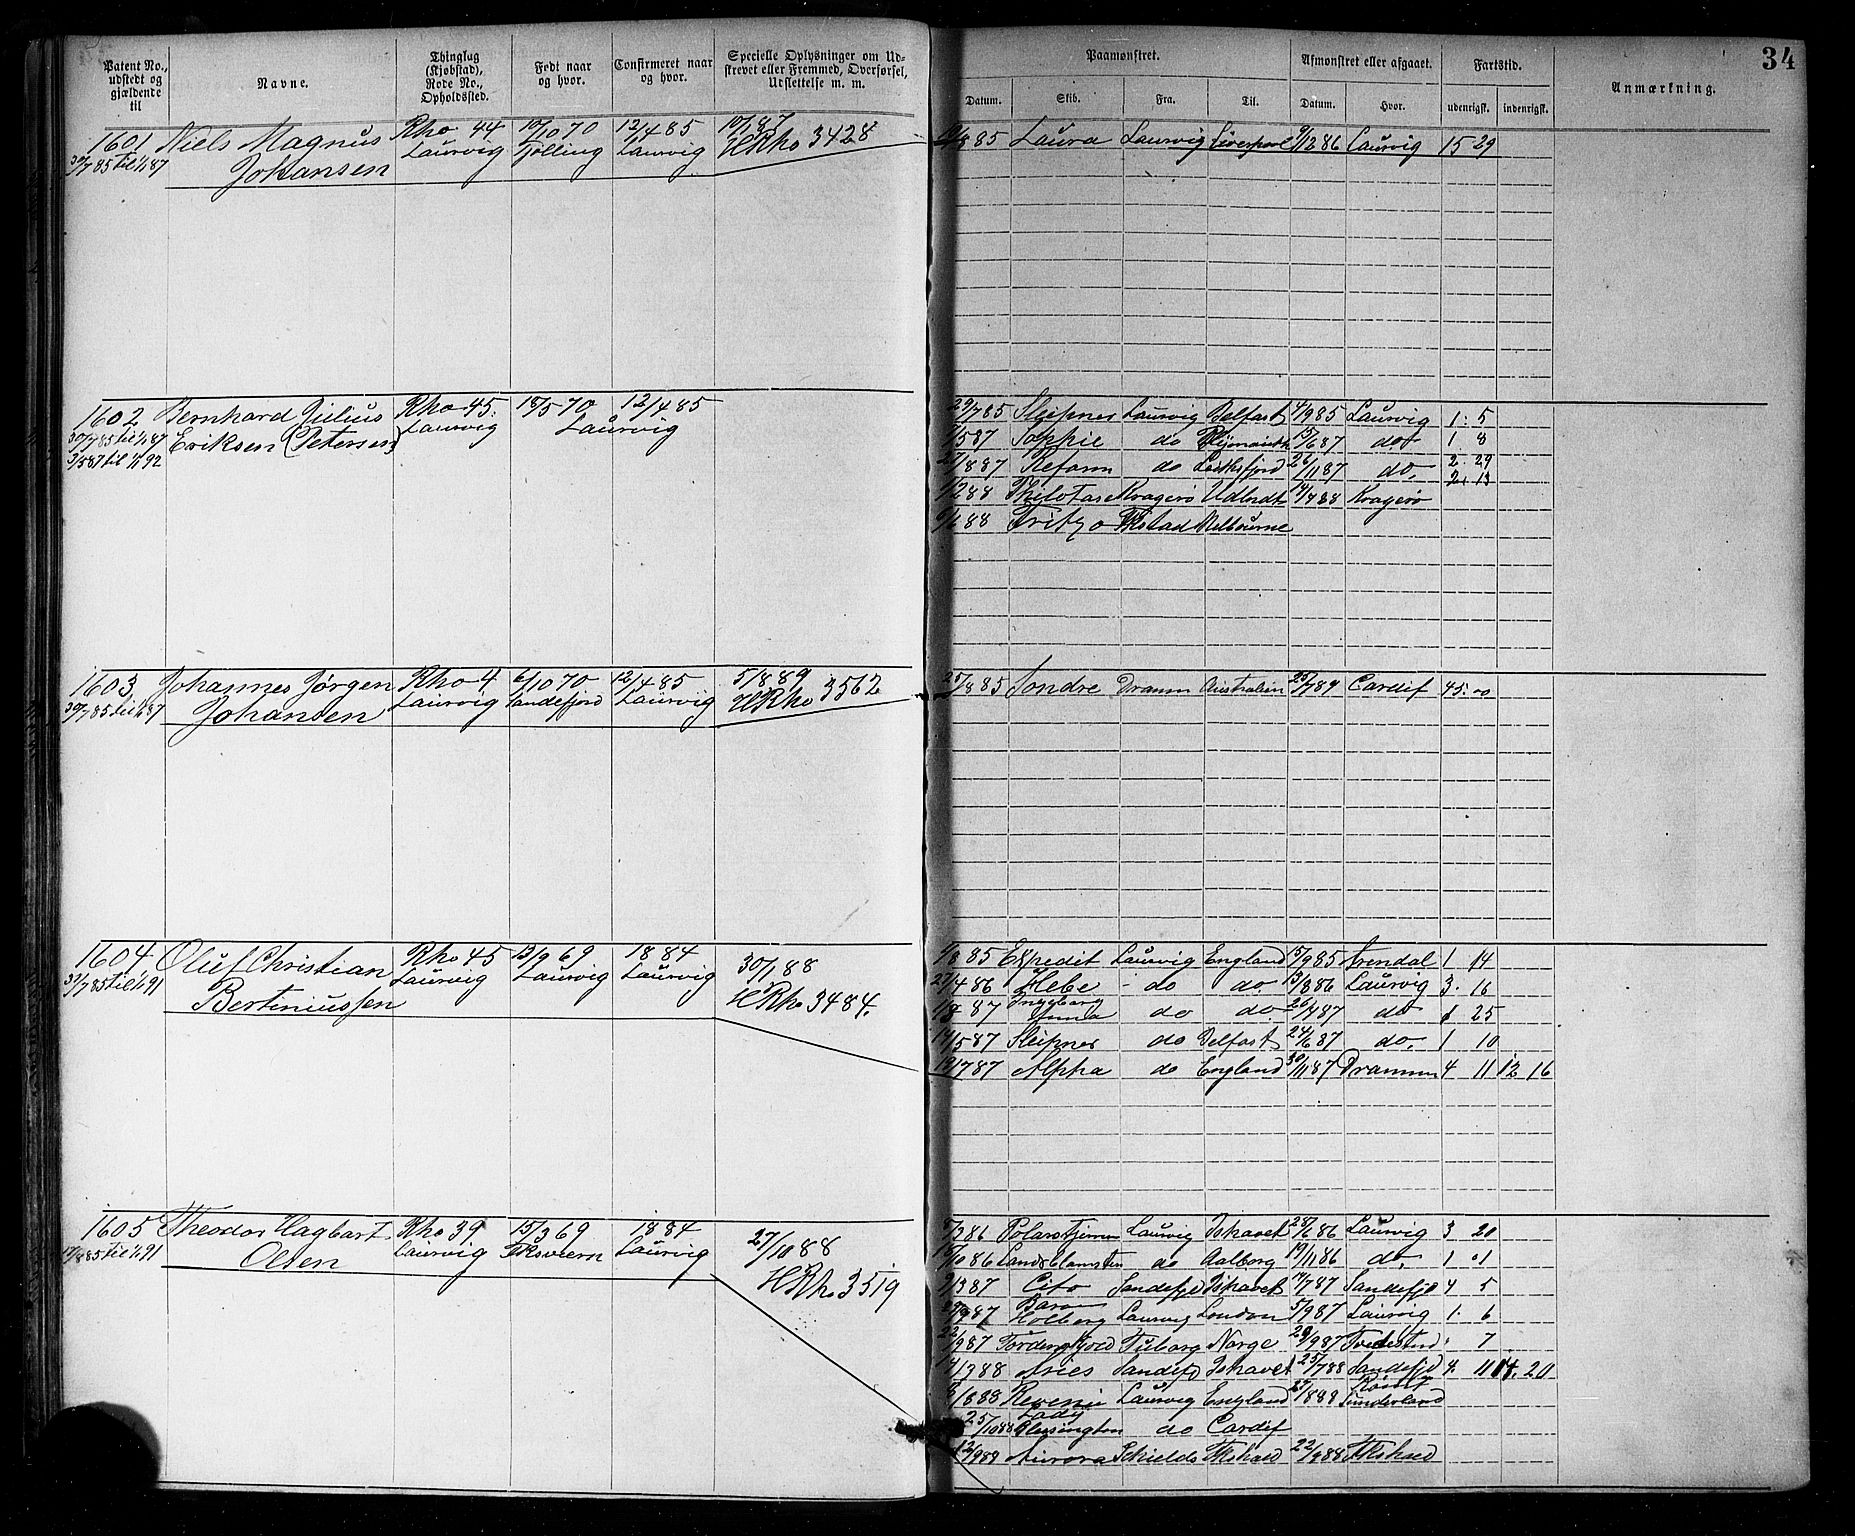 34
Patent No., udstedt og gjældende til
Navne.
Thinglag (Kjøbstad), Rode No., Opholdssted.
Født naar og hvor.
Confirmeret naar og hvor.
Specielle Oplysninger om Udskrevet eller Fremmed, Overførsel, Udslettelse m. m.
Paamønstret.
Afmønstret eller afgaaet.
Fartstid.
Anmærkning.
Datum. Skib. Fra. Til. Datum. Hvor. udenrigsk. indenrigsk.
1601 Niels Magnus Rho 44 10/10 70 12/4 85 10/1 87
30/7 85 til 1/1 87 Johansen Laurvig Tjølling Laurvig HRho 3428
8 85 Laura Laurvig Liverpool 9/12 86 Laurvig 15 29
1602 Bernhard Julius Rho 45. 18/5 70 12/4 85
30/7 85 til 1/1 87 Eriksen (Petersen) Laurvig Laurvig
3/5 87 til 1/1 92
29/7 85 Sleipner Laurvig Belfast 4/9 85 Laurvig 1: 5
/5 87 Sophie do Plymouth 15/6 87 do 1 8
27/8 87 Reform do 26/11 87 do. 2. 29
2. 13
1/2 88 Kragerø Udlndt 14/4 88 Kragerø
6/6 88 Fritzo Fkstad Melbourne
1603 Johannes Jørgen Rho 4 6/10 70 12/4 85 5/8 89
30/7 85 til 1/1 87 Johansen Laurvig Sandefjord Laurvig HRho 3562
25/8 85 Sondre Dramm Australien 25/7 89 Cardif 45. 00
1604 Oluf Christian Rho 45 13/9 69 1884 30/1 88
31/7 85 til 1/1 91 Bertiniussen Laurvig Laurvig Laurvig HRho 3484.
4/8 85 Expedit Laurvig England 15/9 85 Arendal 1 14
27/4 86 Hebe do do 13/8 86 Laurvig 3. 16
87 Ingeborg Anna do do. 26/4 87 do 1 25
14/5 87 Sleipner do Belfast 24/6 87 do. 1 10
19/7 87 Alpha do England 30/11 87 Drammen 4 11 12 16
1605 Theodor Hagbart Rho 39 15/3 69 1884 27/10 88
85 til 1/1 91 Olsen Laurvig Fksværn Laurvig HRho 3519
5/3 86 Polarstjernen Laurvig Ishavet 28/6 86 Laurvig 3 20
18/10 86 do Aalborg 19/11 86 do. 1 01
9/3 87 Cito Sandefjd Ishavet 14/7 87 Sandefjd 4 5
87 Baron Holberg Laurvig London 5/9 87 Laurvig 1. 6
22/9 87 Tordenskjold Tuborg Norge 29/9 87 Tvedestrd 7
14/3 88 Aries Sandefd Ishavet 25/7 88 Sandefjd 4. 11 14. 20
88 Laurvig England 27/8 88 Rømt Sunderland
25/10 88 Lady Blessington do Cardif
12/9 88 Aurora Schields Fkshald 22/9 88 Fkshald